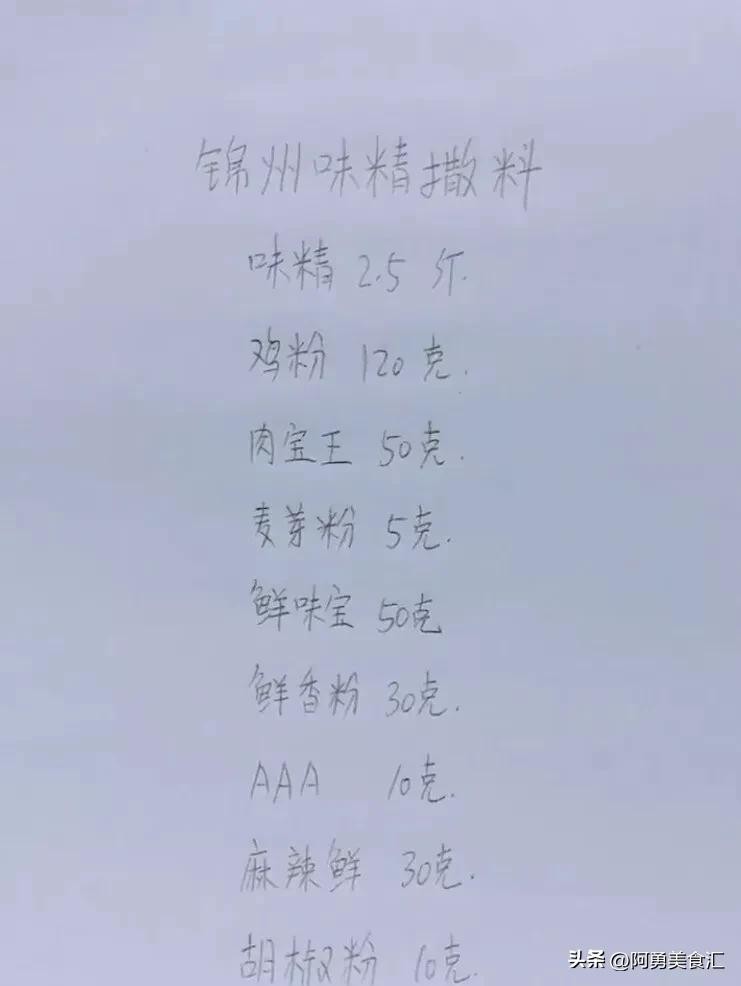 锦州味精撒料
味精 2.5 斤.
鸡粉 120克.
肉宝王 50克.
麦芽粉 5克.
鲜味宝 50克
鲜香粉 30克.
AAA 10克.
麻辣鲜 30克.
胡椒粉 10克.
头条 @阿勇美食汇